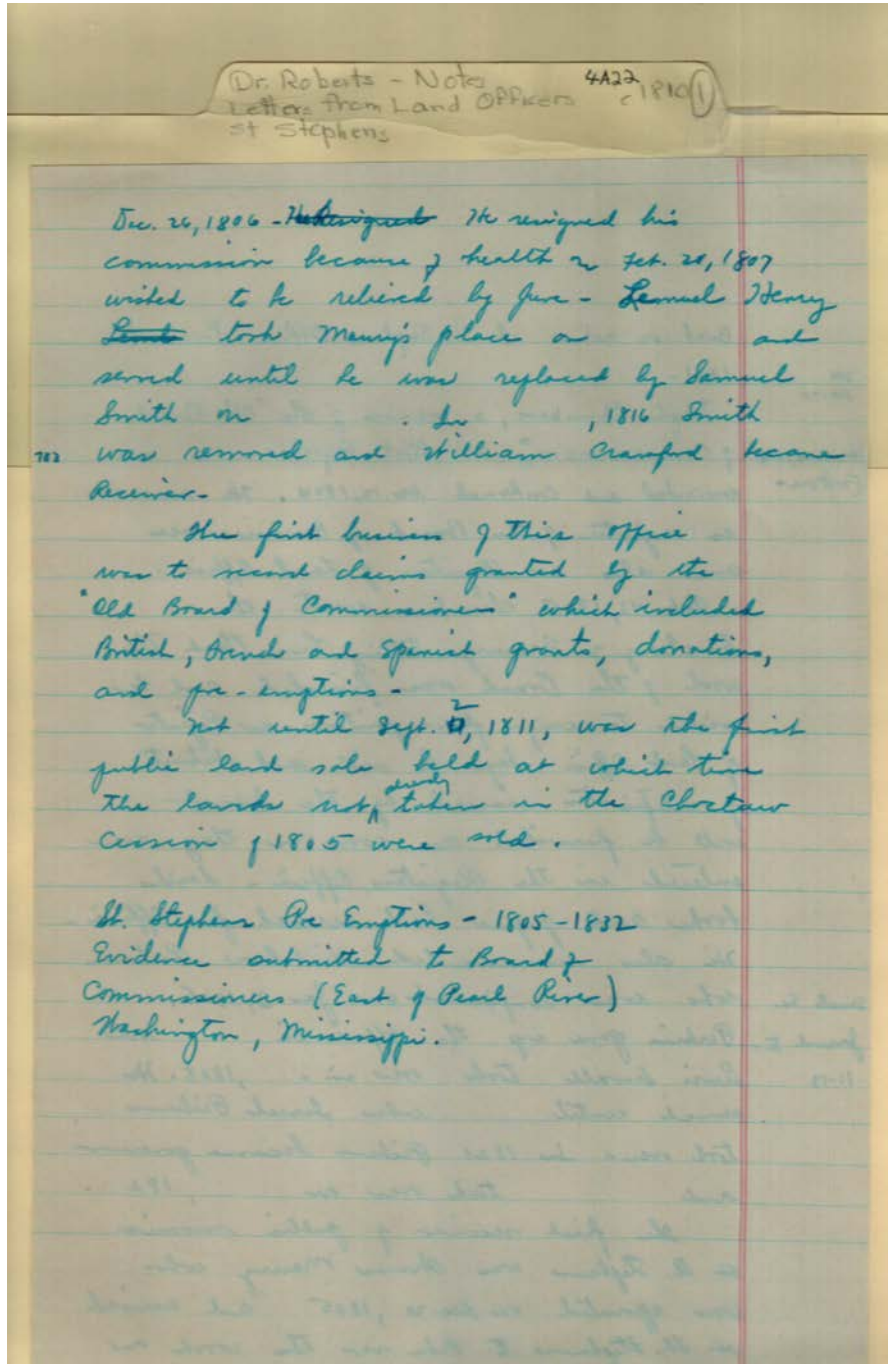 Dr. Roberts - Notes 4A22
Letters from Land Officers c 1810 1
St Stephens
Dec. 26, 1806 - He resigned He resigned his
commission because of health on Feb. 20, 1807
wished to be relieved by June - Lemuel Henry
took Maury's place on and
served until he was replaced by Samuel
Smith on . In , 1816 Smith
702 was removed and William Crawford became
Receiver.
The first business of this office
was to record claims granted by the
"Old Board of Commissioners" which included
British, French and Spanish grants, donations,
and pre-emptions -
Not until Sept. 2, 1811, was the first
public land sale held at which time
the lands not taken in the Choctaw
Cession of 1805 were sold.
St. Stephens Pre Emptions - 1805-1832
Evidence submitted to Board of
Commissioners (East of Pearl River)
Washington, Mississippi.